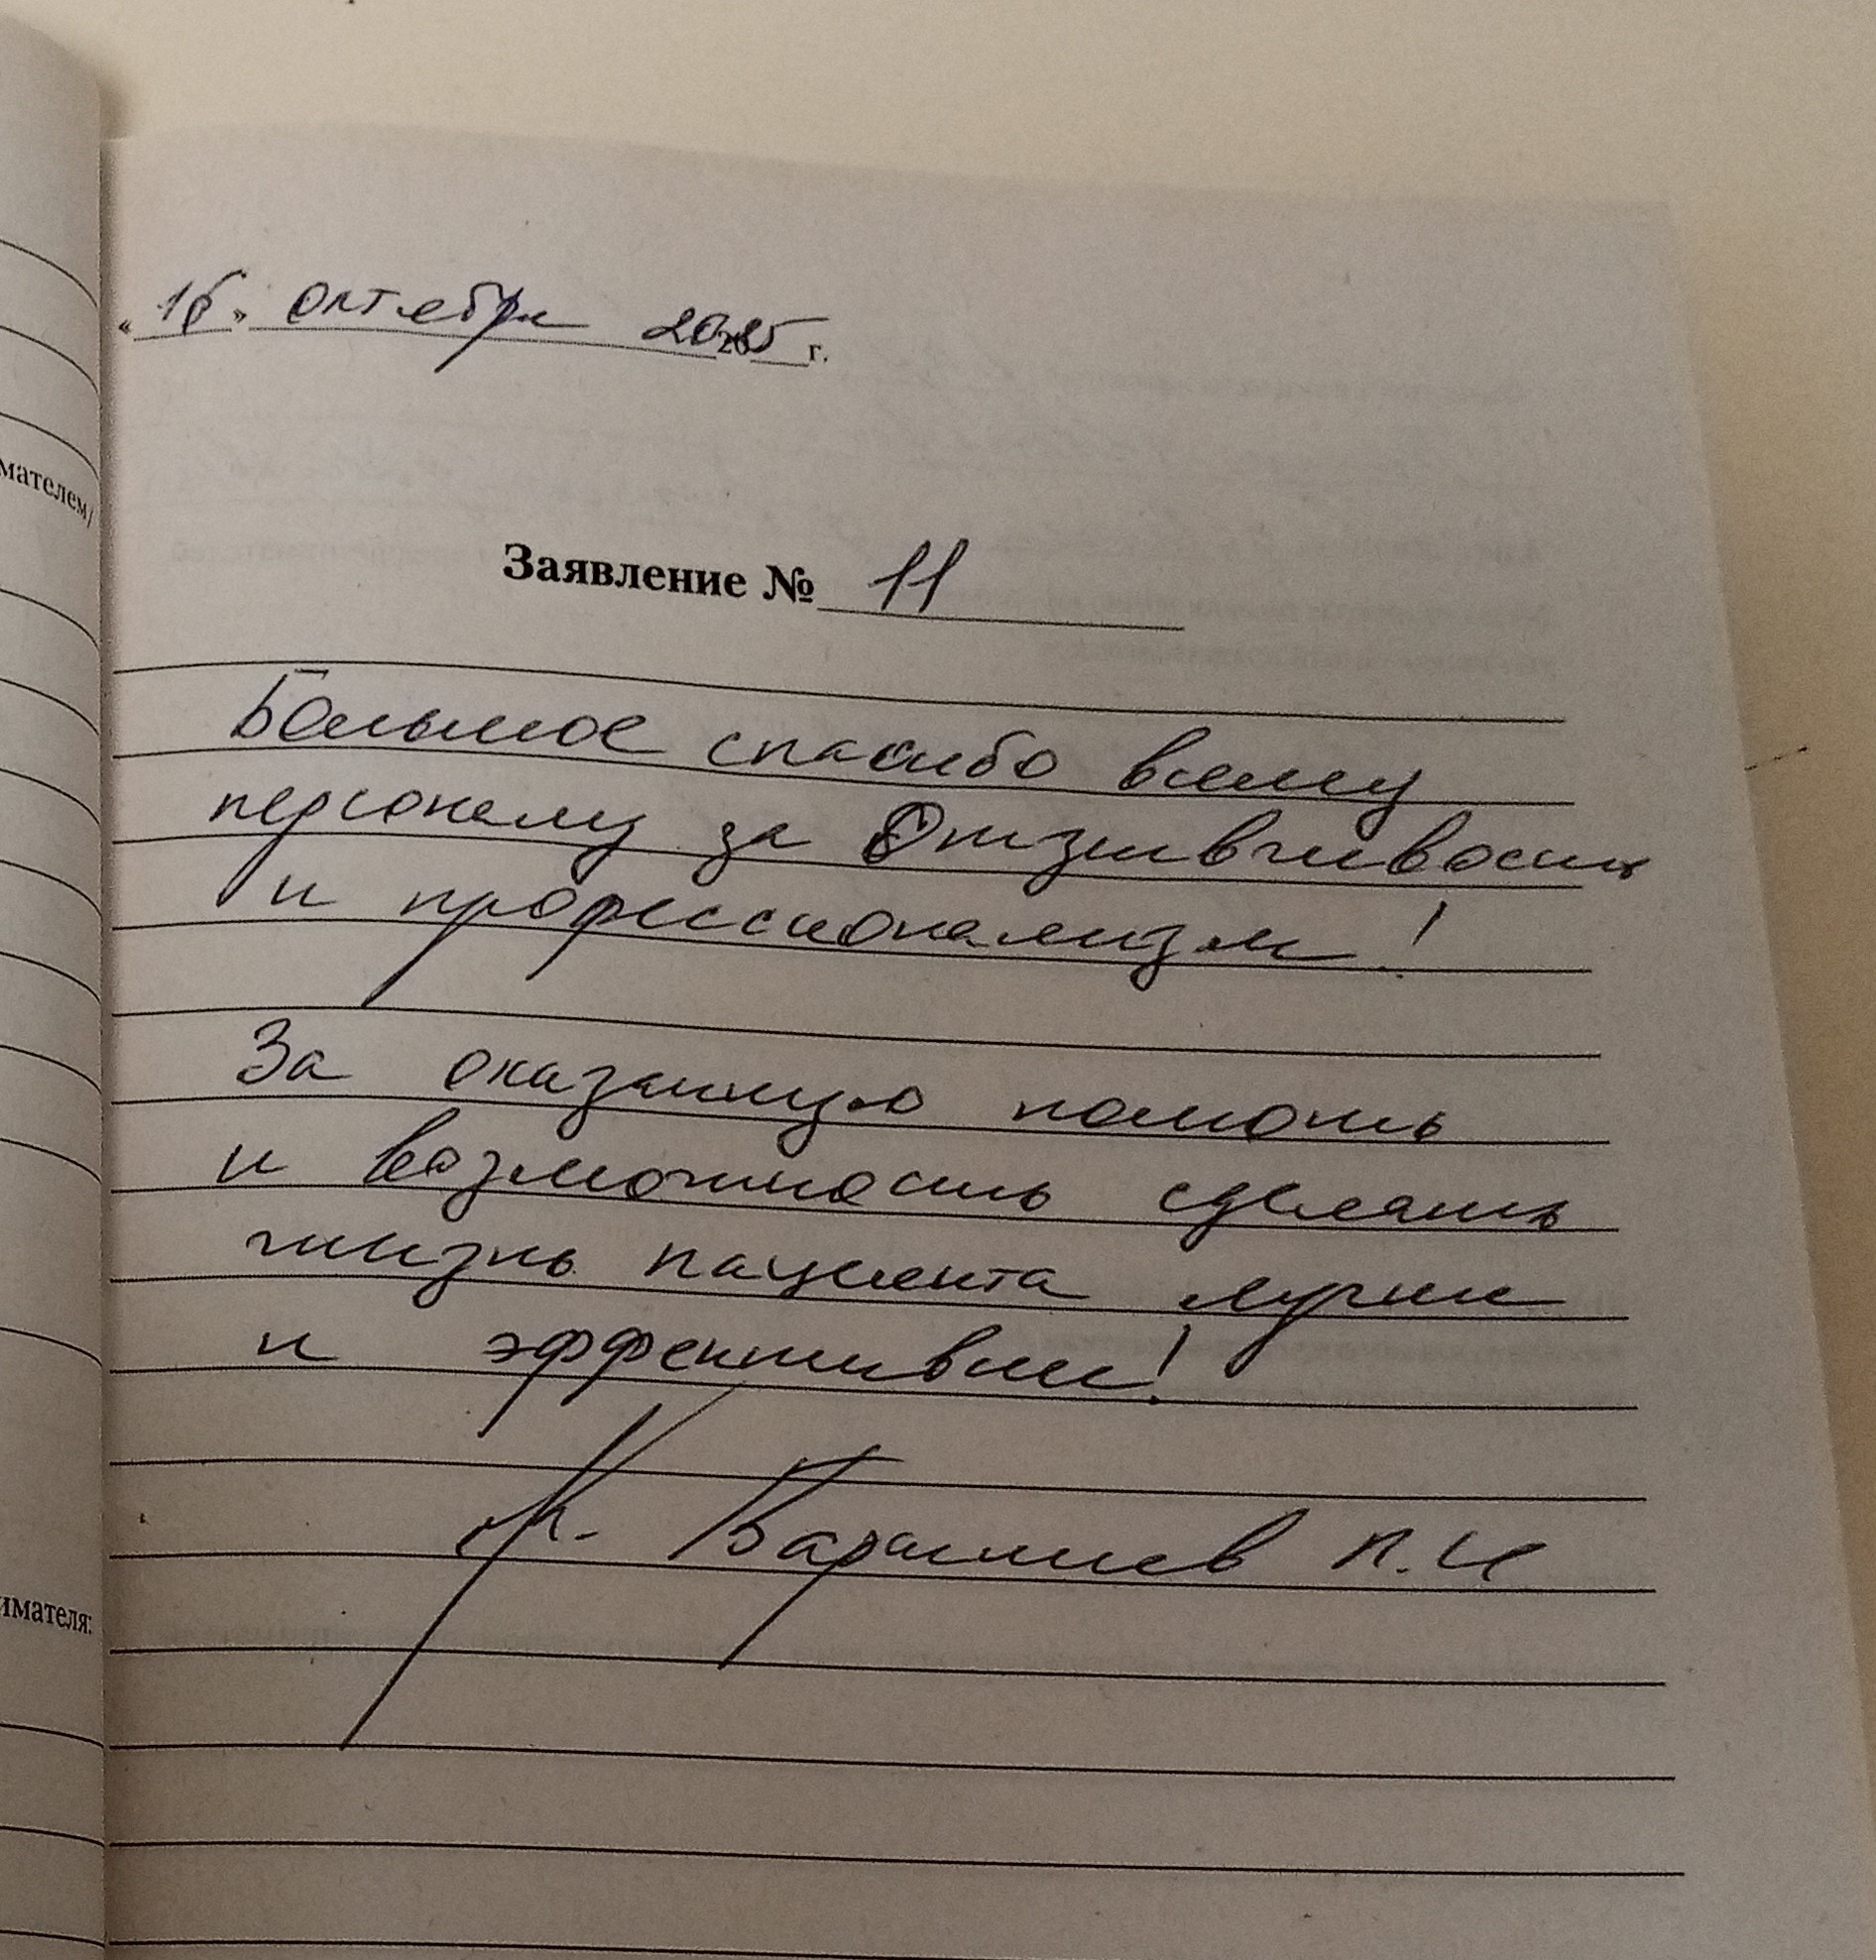 мателем/
имателя:
« 16 » октября 2025 г.
Заявление № 11
Большое спасибо всему
персоналу за Отзывчивость
и профессионализм !
За оказанную помощь
и возможность сделать
жизнь пациента лучше
и эффективней!
П.И